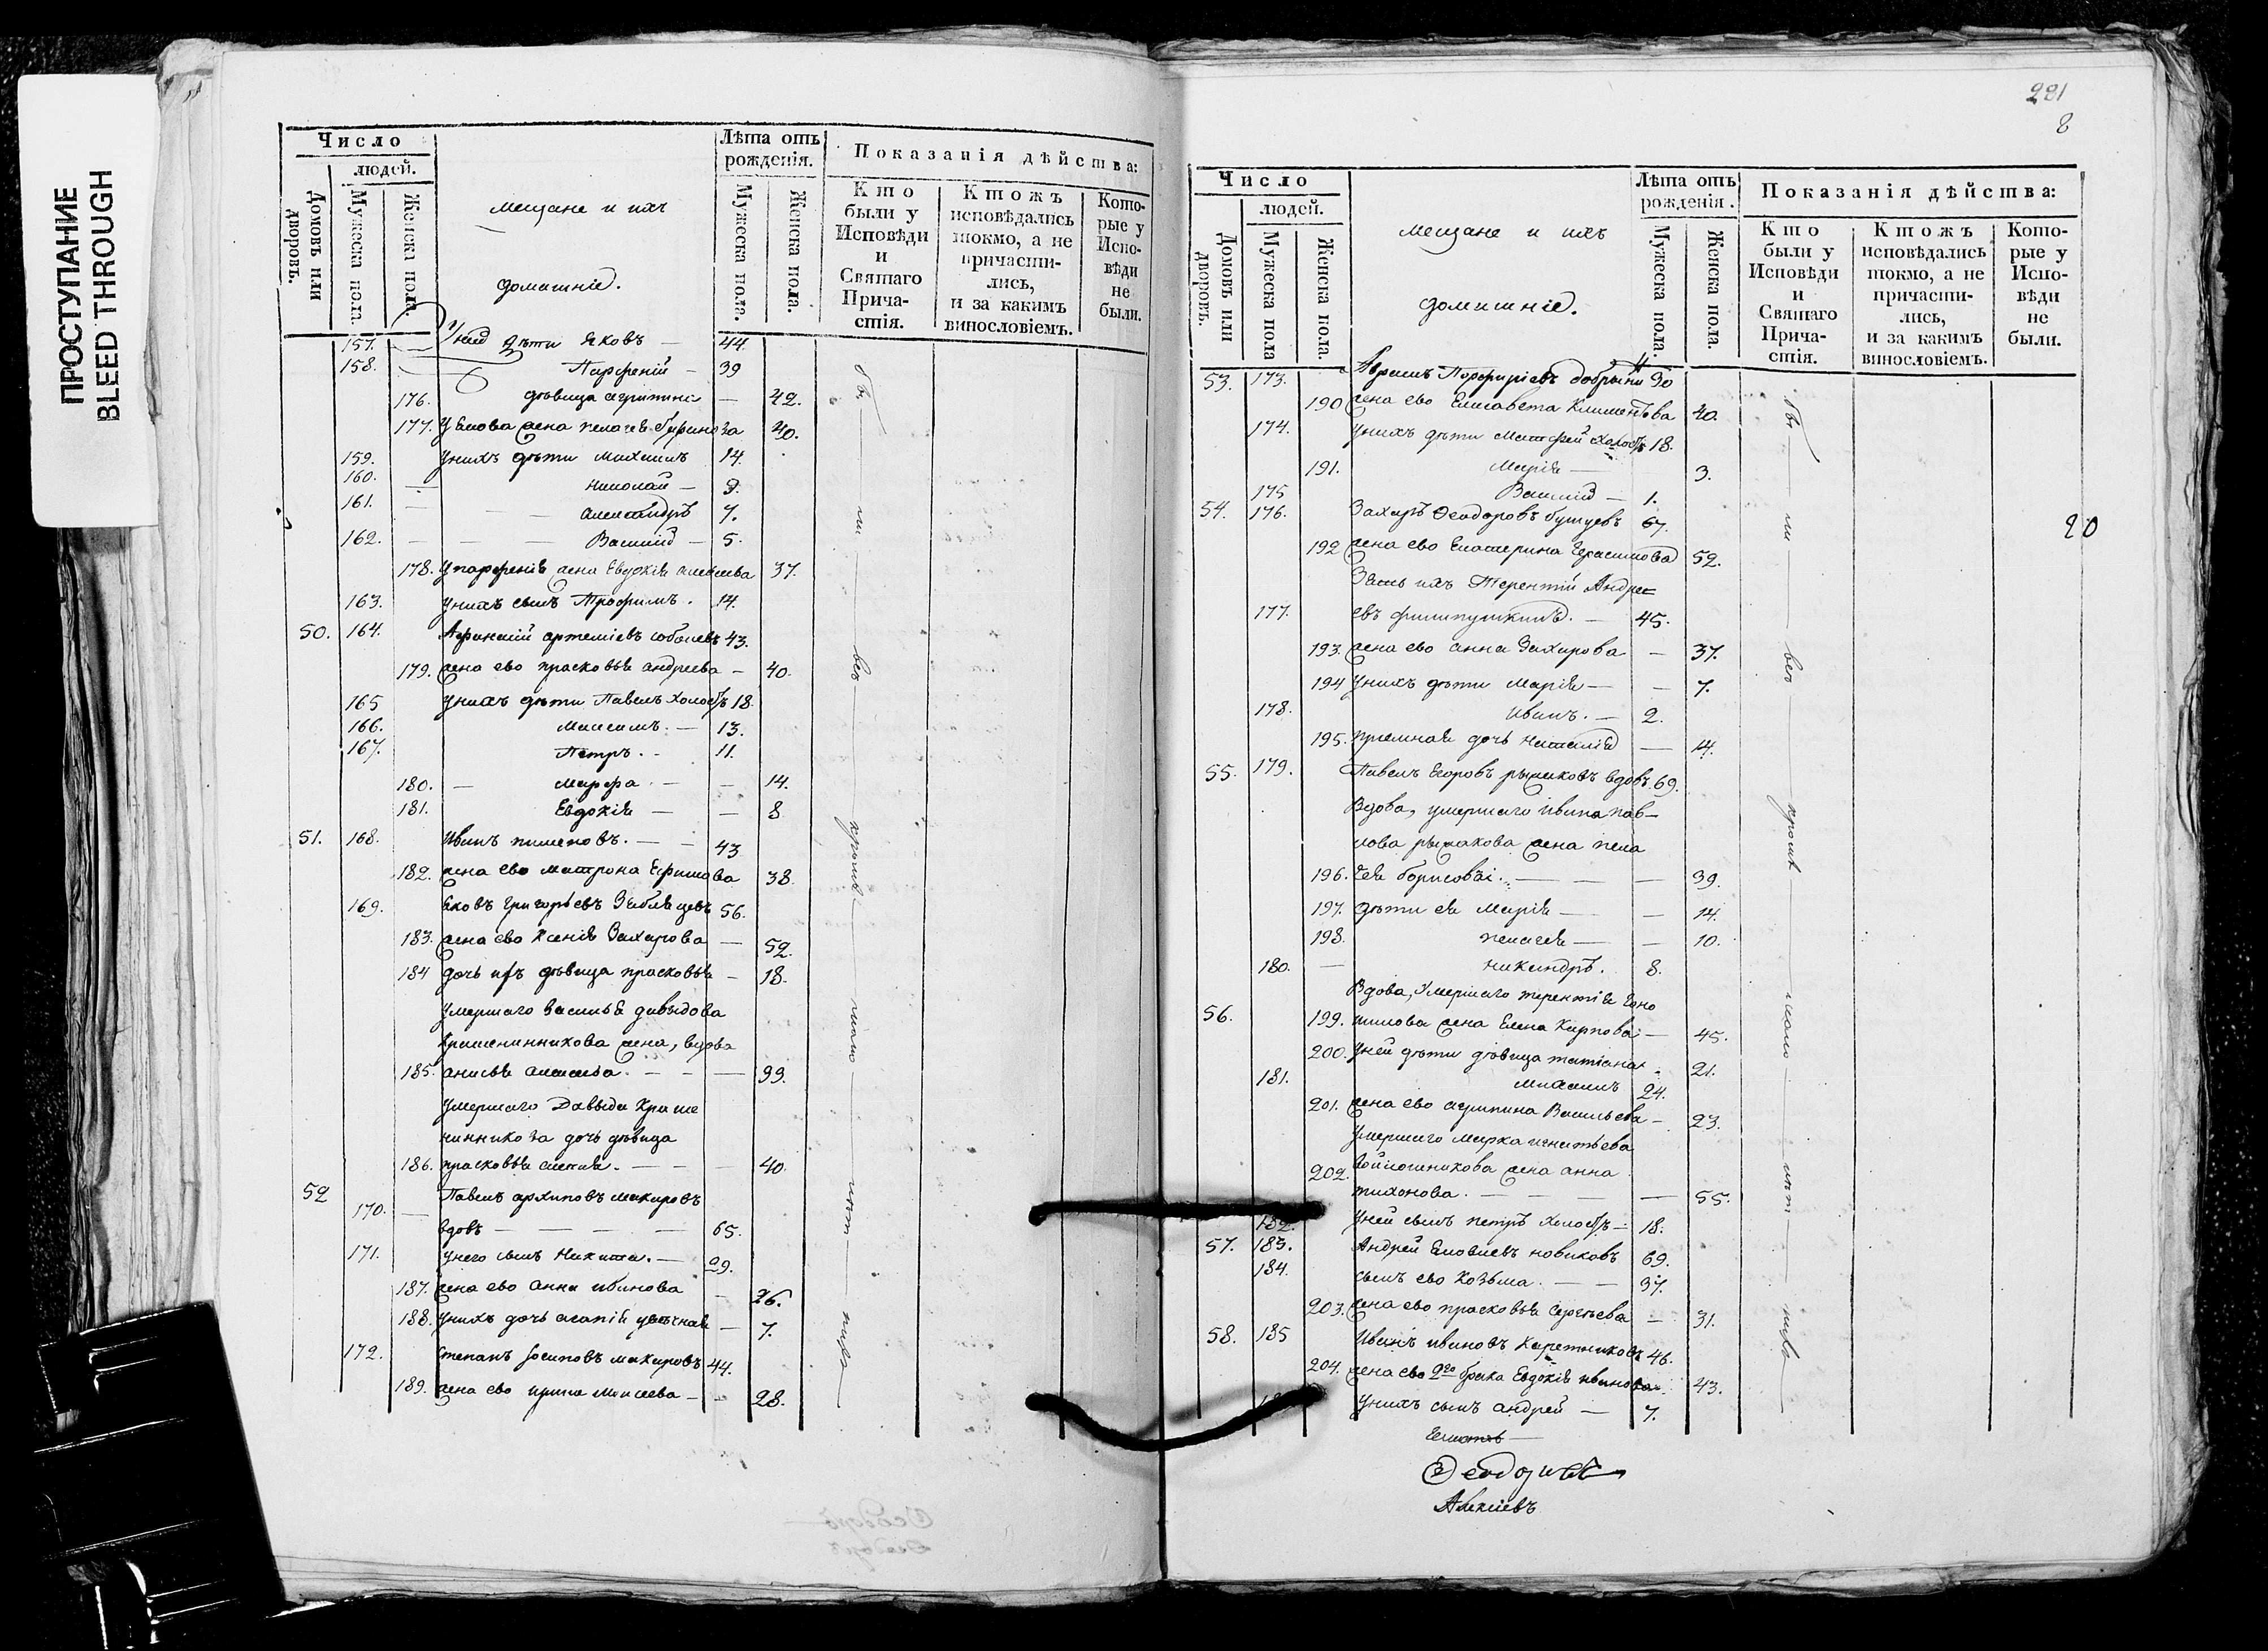 ПРОСТУПАНИЕ
BLEED THROUGH
Число
людей.
Домовъ или дворовъ.
Мужеска пола.
Женска пола.
мещане и ихъ
домашніе.
Лѣта отъ рожденія.
Мужеска пола.
Женска пола.
Показанія дѣйства:
Кто были у Исповѣди и Святаго Причастія.
Ктожъ исповѣдались токмо, а не причастились, и за какимъ винословіемъ.
Которые у Исповѣди не были.
157. дѣти Яковъ — 44.
158. Парфеній — 39
176. дѣвица агрипина — 42.
177. жена пелагея 40.
159. Унихъ дѣти Михаилъ 14.
160. николай — 9.
161. александръ 7.
162. Василій — 5.
178. Упарфенія жена Евдокія алексеева 37.
163. Унихъ сынъ Трофимъ. 14.
50. 164. Афанасій артеміевъ соболевъ 43.
179. жена ево прасковья андреева — 40.
165 Унихъ дѣти Павелъ холостъ 18.
166. Максимъ. — 13.
167. Петръ. - 11.
180. — марфа — 14.
181. Евдокія — 8
51. 168. Иванъ пименовъ. — 43
182. жена ево матрона Ефимова 38
169. Яковъ григорьевъ 56.
183. жена ево Ксенія Захарова — 52.
184 дочь ихъ дѣвица прасковья — 18.
Умершаго василья давыдова
Крашенинникова жена, вдова
185. анисья — 39.
Умершаго Давыда Краше
нинникова дочь дѣвица
186. прасковья — 40.
52 Павелъ архиповъ макаровъ
170. вдовъ — 65.
171. Унего сынъ Никита. — 29.
187. жена ево анна иванова — 26.
188. Унихъ дочь — 7.
172. Степанъ Іосиповъ макаровъ 44.
189. жена ево ирина Моисеева — 28.
221
8
Число
людей.
Домовъ или дворовъ.
Мужеска пола
Женска пола.
мещане и ихъ
домашніе.
Лѣта отъ рожденія.
Мужеска пола.
Женска пола.
Показанія дѣйства:
Кто были у Исповѣди и Святаго Причастія.
Ктожъ исповѣдались токмо, а не причастились, и за какимъ винословіемъ.
Которые у Исповѣди не были.
53. 173. Порфиріевъ добрынинъ
190 жена ево Елисавета Климентова 40.
174. Унихъ дѣти Матфей холостъ 18.
191. Марія — 3.
175 Василій — 1.
54. 176. Захаръ Ѳеодоровъ 67.
192 жена ево Екатерина Герасимова 52.
Зять ихъ Терентій Андре=
177. евъ филипушкинъ. — 45.
193. жена ево анна Захарова — 37.
194 Унихъ дѣти Марія — 7.
178. Иванъ. — 2.
195. приемная дочь наталія — 14.
55. 179. Павелъ Егоровъ рыжиковъ вдовъ 69.
Вдова, умершаго ивана пав—
лова рыжакова жена пела
196. гея борисова. — 39.
197. дѣти ея Марія — 14.
198. пелагея — 10.
180. никандръ. 8.
Вдова, Умершаго терентія
56. 199. жена Елена Карпова — 45.
200. Уней дѣти дѣвица татіана 21.
181. Михаилъ 24.
201. жена ево агрипина Васильева — 23.
Умершаго марка игнатьева
202. Войлошникова жена анна
тихонова. — 55.
182. Уней сынъ петръ холостъ — 18.
57. 183. Андрей новиковъ 69.
184. сынъ ево козьма. — 37.
203. жена ево прасковья сергѣева — 31.
58. 185 Иванъ ивановъ Каретниковъ 46.
204. жена ево 2го брака Евдокія иванова. 43.
Унихъ сынъ андрей — 7.
20
Алексіевъ